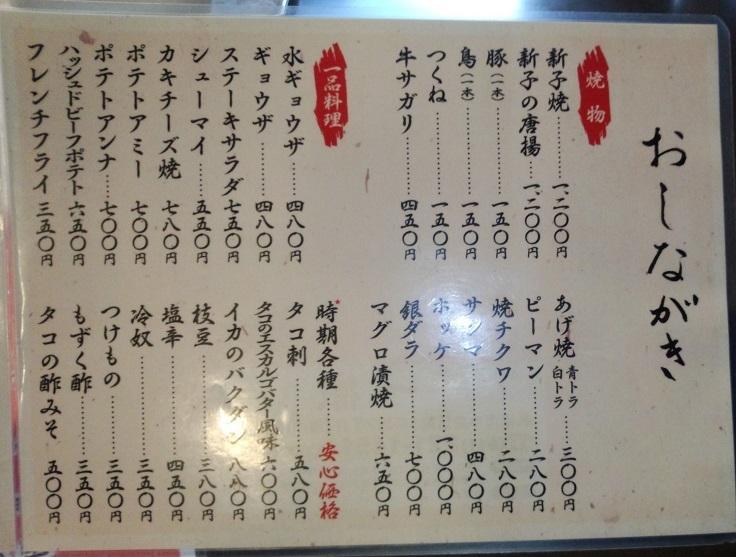 おしながき
焼物
新子焼………一、二〇〇円
新子の唐揚……一、二〇〇円
豚(一本)………一五〇円
鳥(一本)………一五〇円
つくね………一五〇円
牛サガリ………四五〇円
あげ焼 青トラ 白トラ………三〇〇円
ピーマン………二八〇円
焼チクワ………二八〇円
サンマ………四八〇円
ホッケ………一、〇〇〇円
銀ダラ………七〇〇円
マグロ漬焼………六五〇円
一品料理
水ギョウザ……四八〇円
ギョウザ………四八〇円
ステーキサラダ 七五〇円
シューマイ……五五〇円
カキチーズ焼 七八〇円
ポテトアミー 七〇〇円
ポテトアンナ…七〇〇円
ハッシュドビーフポテト 六五〇円
フレンチフライ 三五〇円
時期各種………安心価格
タコ刺………五八〇円
タコのエスカルゴバター風味 六〇〇円
イカのバクダン 八八〇円
枝豆………三八〇円
塩辛………四五〇円
冷奴………三五〇円
つけもの………三五〇円
もずく酢………三五〇円
タコの酢みそ 五〇〇円